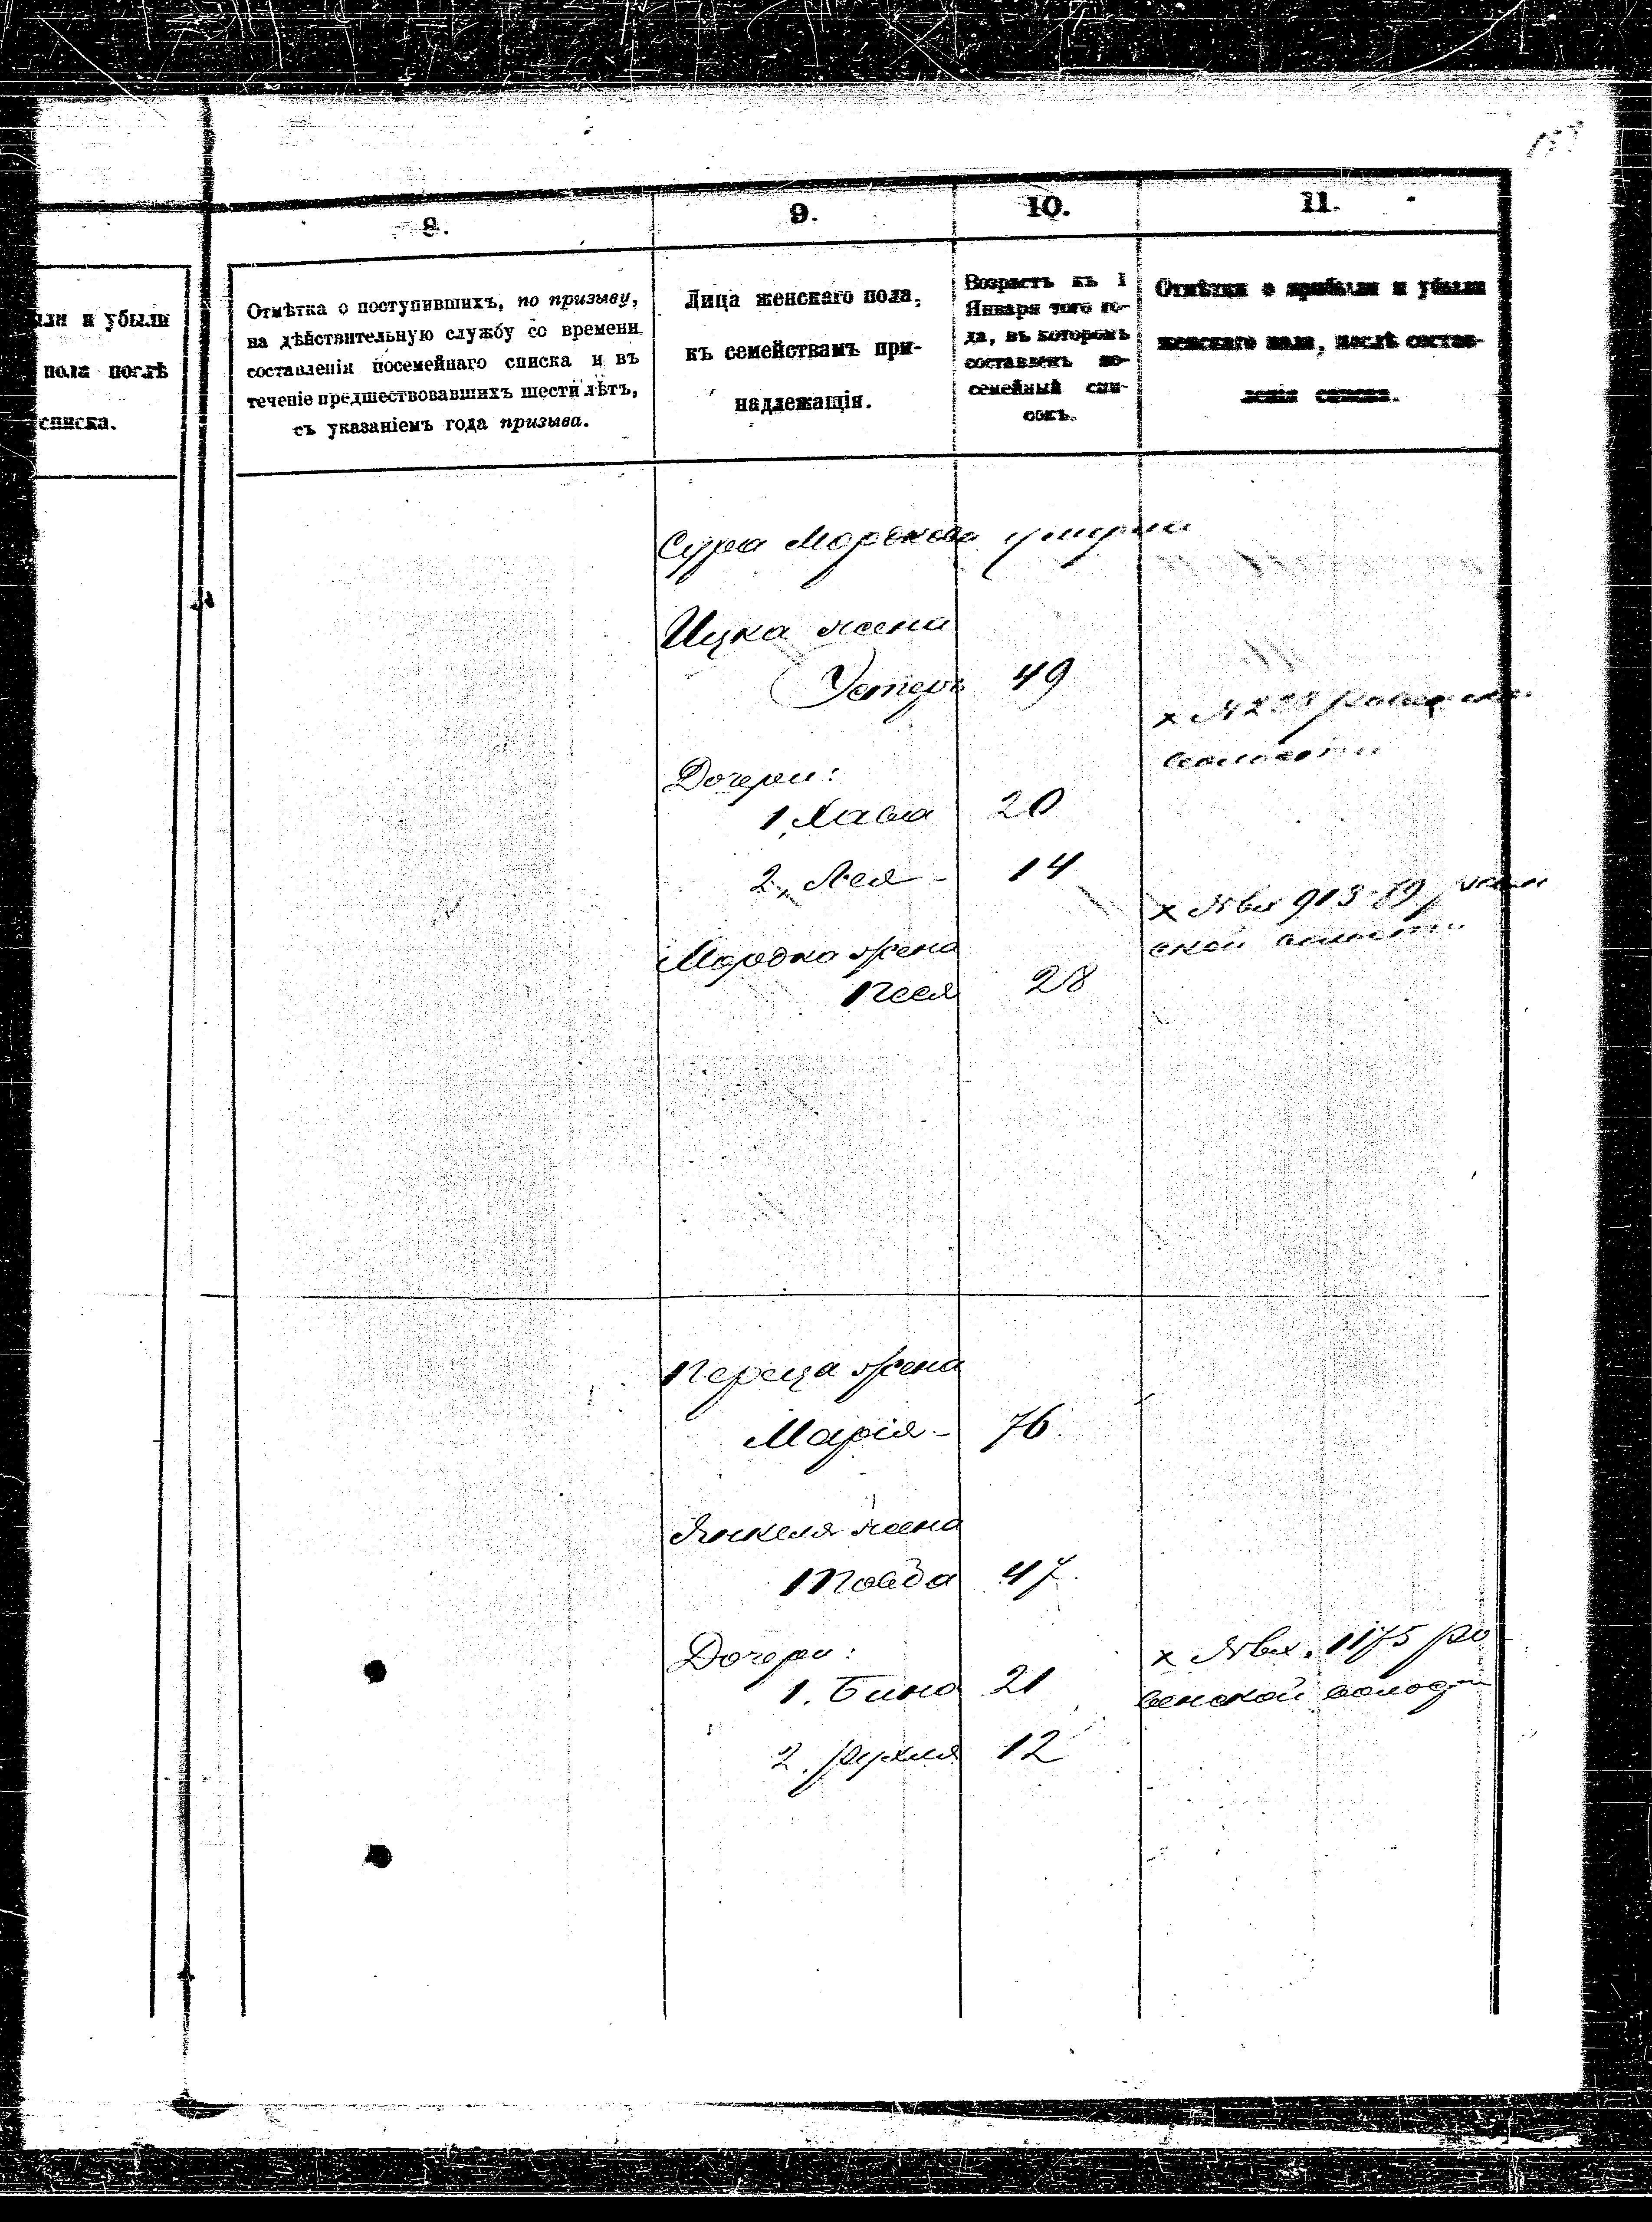 8.
9.
10.
11.
ыли и убыли
пола послѣ
списка.
Отмѣтка о поступившихъ, по призыву,
на дѣйствительную службу со времени
составленія посемейнаго списка и въ
теченіе предшествовавшихъ шести лѣтъ,
съ указаніемъ года призыва.
Лица женскаго пола,
къ семействамъ при-
надлежащія.
Возрастъ къ 1
Января того го-
да, въ которомъ
составленъ по-
семейный спи-
сокъ.
Отмѣтки о прибыли и убыли
женскаго пола, послѣ состав-
ленія списка.
Сура Мордкова умерла
Ицка жена
Устеръ 49
Дочери:
1, Хава 20
2, Лея - 14
х №вх 913-89
ской волости
Мордко жена
Песя 28
Переца жена
Марія - 76
Янкеля жена
Товба 47
Дочери:
х №вх. 1175 Ро-
1. Бина 21
венской волости
2. Рухля 12